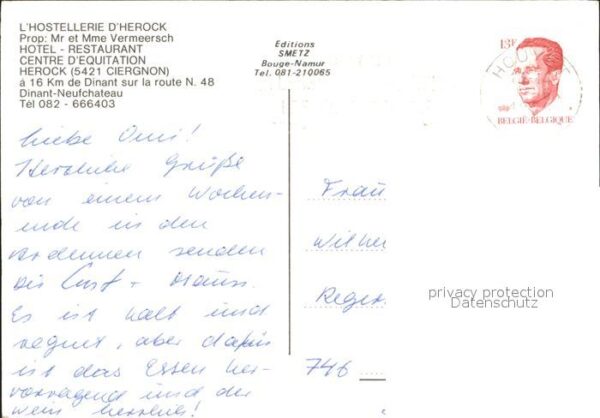 L'HOSTELLERIE D'HEROCK
Prop: Mr et Mme Vermeersch
HOTEL - RESTAURANT
CENTRE D'EQUITATION
HEROCK (5421 CIERGNON)
à 16 Km de Dinant sur la route N. 48
Dinant-Neufchateau
Tél 082 - 666403
Editions
SMETZ
Bouge-Namur
Tel. 081-210065
13F
HOUY
BELGIË-BELGIQUE
Liebe Omi!
Herzliche Grüße
von einem Wochen-
ende in den
Ardennen senden
Dir Curt +
Es ist kalt und
regnet, aber dafür
ist das Essen her-
vorragend und der
Wein herrlich!
Frau
Wilhe
Regen
746
privacy protection
Datenschutz